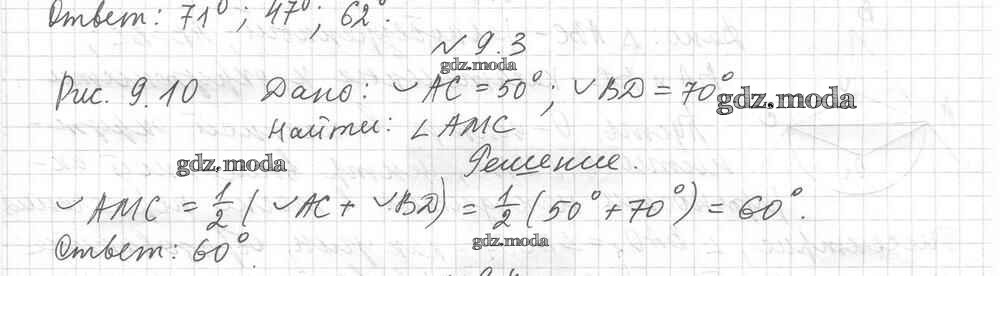 Ответ: 71°; 47°; 62°.
№ 9.3
gdz.moda
Рис. 9.10 Дано: ◡ AC = 50°; ◡ BD = 70°
gdz.moda
Найти: ∠ AMC
gdz.moda
Решение.
◡ AMC = 1/2 ( ◡ AC + ◡ BD) = 1/2 (50° + 70°) = 60°.
gdz.moda
Ответ: 60°.